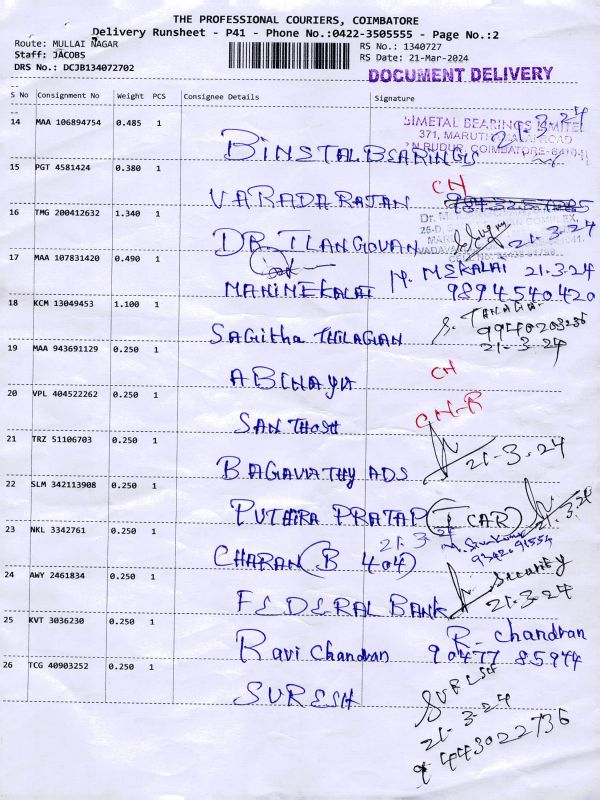 THE PROFESSIONAL COURIERS, COIMBATORE
Delivery Runsheet - P41 - Phone No.:0422-3505555 - Page No.:2
Route: MULLAI NAGAR
Staff: JACOBS
DRS No.: DCJB134072702
RS No.: 1340727
RS Date: 21-Mar-2024
DOCUMENT DELIVERY
S No Consignment No Weight PCS Consignee Details Signature
14 MAA 106894754 0.485 1 BINSTAL BEARINGS
BIMETAL BEARINGS LIMITED
371, MARUTHAMALAI ROAD
COIMBATORE-641041
21-3-24
15 PGT 4581424 0.380 1 VARADARAJAN CN
16 TMG 200412632 1.340 1 DR. ILANGOVAN 21-3-24
17 MAA 107831420 0.490 1 MANIMEKALAI M. MEKALAI 21.3.24
9894540420
18 KCM 13049453 1.100 1 SAGITHA THILAGIAN
9940203236
21-3-24
19 MAA 943691129 0.250 1 ABINAYA CN
20 VPL 404522262 0.250 1 SANTHOSH CN-R
21 TRZ 51106703 0.250 1 BAGAVATHY ADS 21-3-24
22 SLM 342113908 0.250 1 PUTHIRA PRATAP (ICAR) 21.3.20
23 NKL 3342761 0.250 1 CHARAN (B 404) 21-3-24
9342091554
24 AWY 2461834 0.250 1 FEDERAL BANK Security
21-3-24
25 KVT 3036230 0.250 1 Ravi Chandran R. chandran
90477 85944
26 TCG 40903252 0.250 1 SURESH SURESH
21-3-24
9443022736